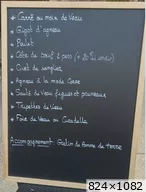 * Carré ou noix de Veau
* Gigot d'agneau
* Poulet
* Côte de boeuf 2 pers
* Civet de sanglier
* Agneau à la mode Corse
* Sauté de Veau figues et pruneaux
* Tripettes de Veau
* Foie de Veau ou
Accompagnement: Gratin de pomme de terre
824×1082